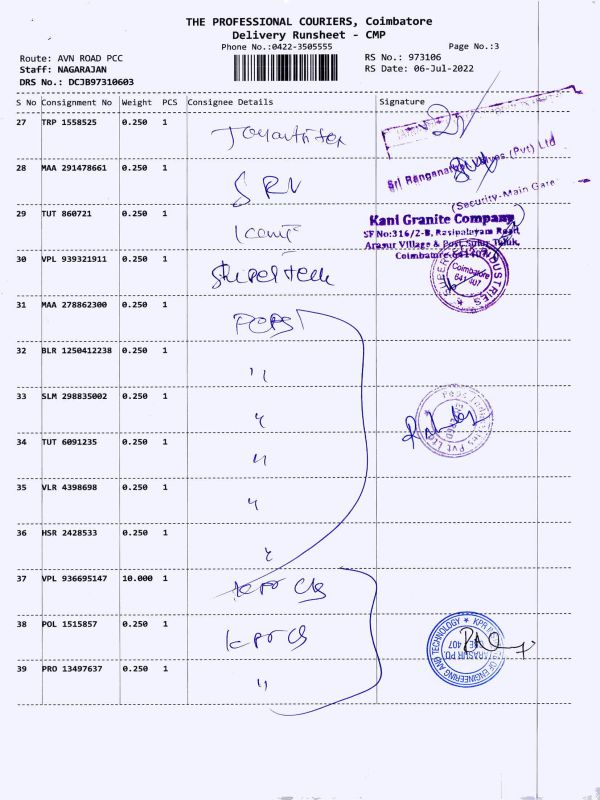 THE PROFESSIONAL COURIERS, Coimbatore
Delivery Runsheet - CMP
Phone No.:0422-3505555 Page No.:3
Route: AVN ROAD PCC RS No.: 973106
Staff: NAGARAJAN RS Date: 06-Jul-2022
DRS No.: DCJB97310603
S No Consignment No Weight PCS Consignee Details Signature
27 TRP 1558525 0.250 1
28 MAA 291478661 0.250 1 SRV
Sri Ranganathar (Pvt) Ltd
(Security-Main Gate)
29 TUT 860721 0.250 1
Kani Granite Company
SF No:316/2-B, Rasipalayam Road,
Arasur Village & Post, Sulur Taluk,
Coimbatore-641407
30 VPL 939321911 0.250 1
INDUSTRIES
Coimbatore
641 407
31 MAA 278862300 0.250 1 POPS
32 BLR 1250412238 0.250 1 "
33 SLM 298835002 0.250 1 "
34 TUT 6091235 0.250 1 "
35 VLR 4398698 0.250 1 "
36 HSR 2428533 0.250 1 "
37 VPL 936695147 10.000 1 KPR CS
38 POL 1515857 0.250 1 KPR CS
OF ENGINEERING AND TECHNOLOGY * KPR
ARASUR PO.
407
39 PRO 13497637 0.250 1 "